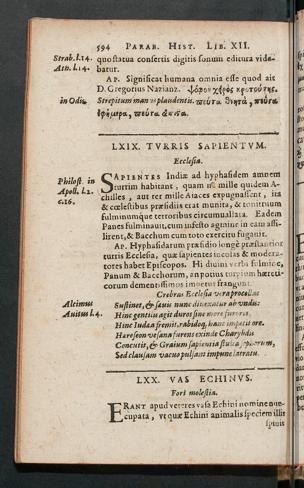 594 PARAB. HIST. LIB. XII.
Strab. l.14. quo statua consertis digitis sonum editura vide-
Atn. l.14. batur.
AP. Significat humana omnia esse quod ait
D. Gregorius Nazianz.
in Odis Strepitum manus plaudentis.
LXIX. TVRRIS SAPIENTVM.
Ecclesia.
Philost. in SAPIENTES Indiæ ad hyphasidem amnem
Apoll. l.2. turrim habitant, quam nec mille quidem A-
c.16. chilles, aut ter mille Aiaces expugnassent, ita
& cœlestibus præsidiis erat munita, & tonitrium
fulminumque terroribus circumuallata. Eadem
Panes fulminauit, cum infesto agmine in eam assi-
lirent, & Bacchum cum toto exercitu fugauit.
AP. Hyphasidarum præsidio longè præstantior
turris Ecclesia, quæ sapientes incolas & modera-
tores habet Episcopos. Hi diuini verbi fulmine,
Panum & Bacchorum, an potius turpium hæreti-
corum dementissimos impetus frangunt.
Crebras Ecclesia vera procellas
Alcimus Sustinet, & sæuis nunc diuexatur ab vndis:
Auitus l.4. Hinc gentilis agit duros sine more furores,
Hinc Iudæa fremit, rabidoq; hanc impetit ore.
Hæreseon vesana furens exinde Charybdis
Concutit, & Graium sapientia
Sed clausam vacuo pulsant impune latratu.
LXX. VAS ECHINVS.
Fort molestia.
ERANT apud veteres vasa Echini nomine nun-
cupata, vt quæ Echini animalis speciem illis